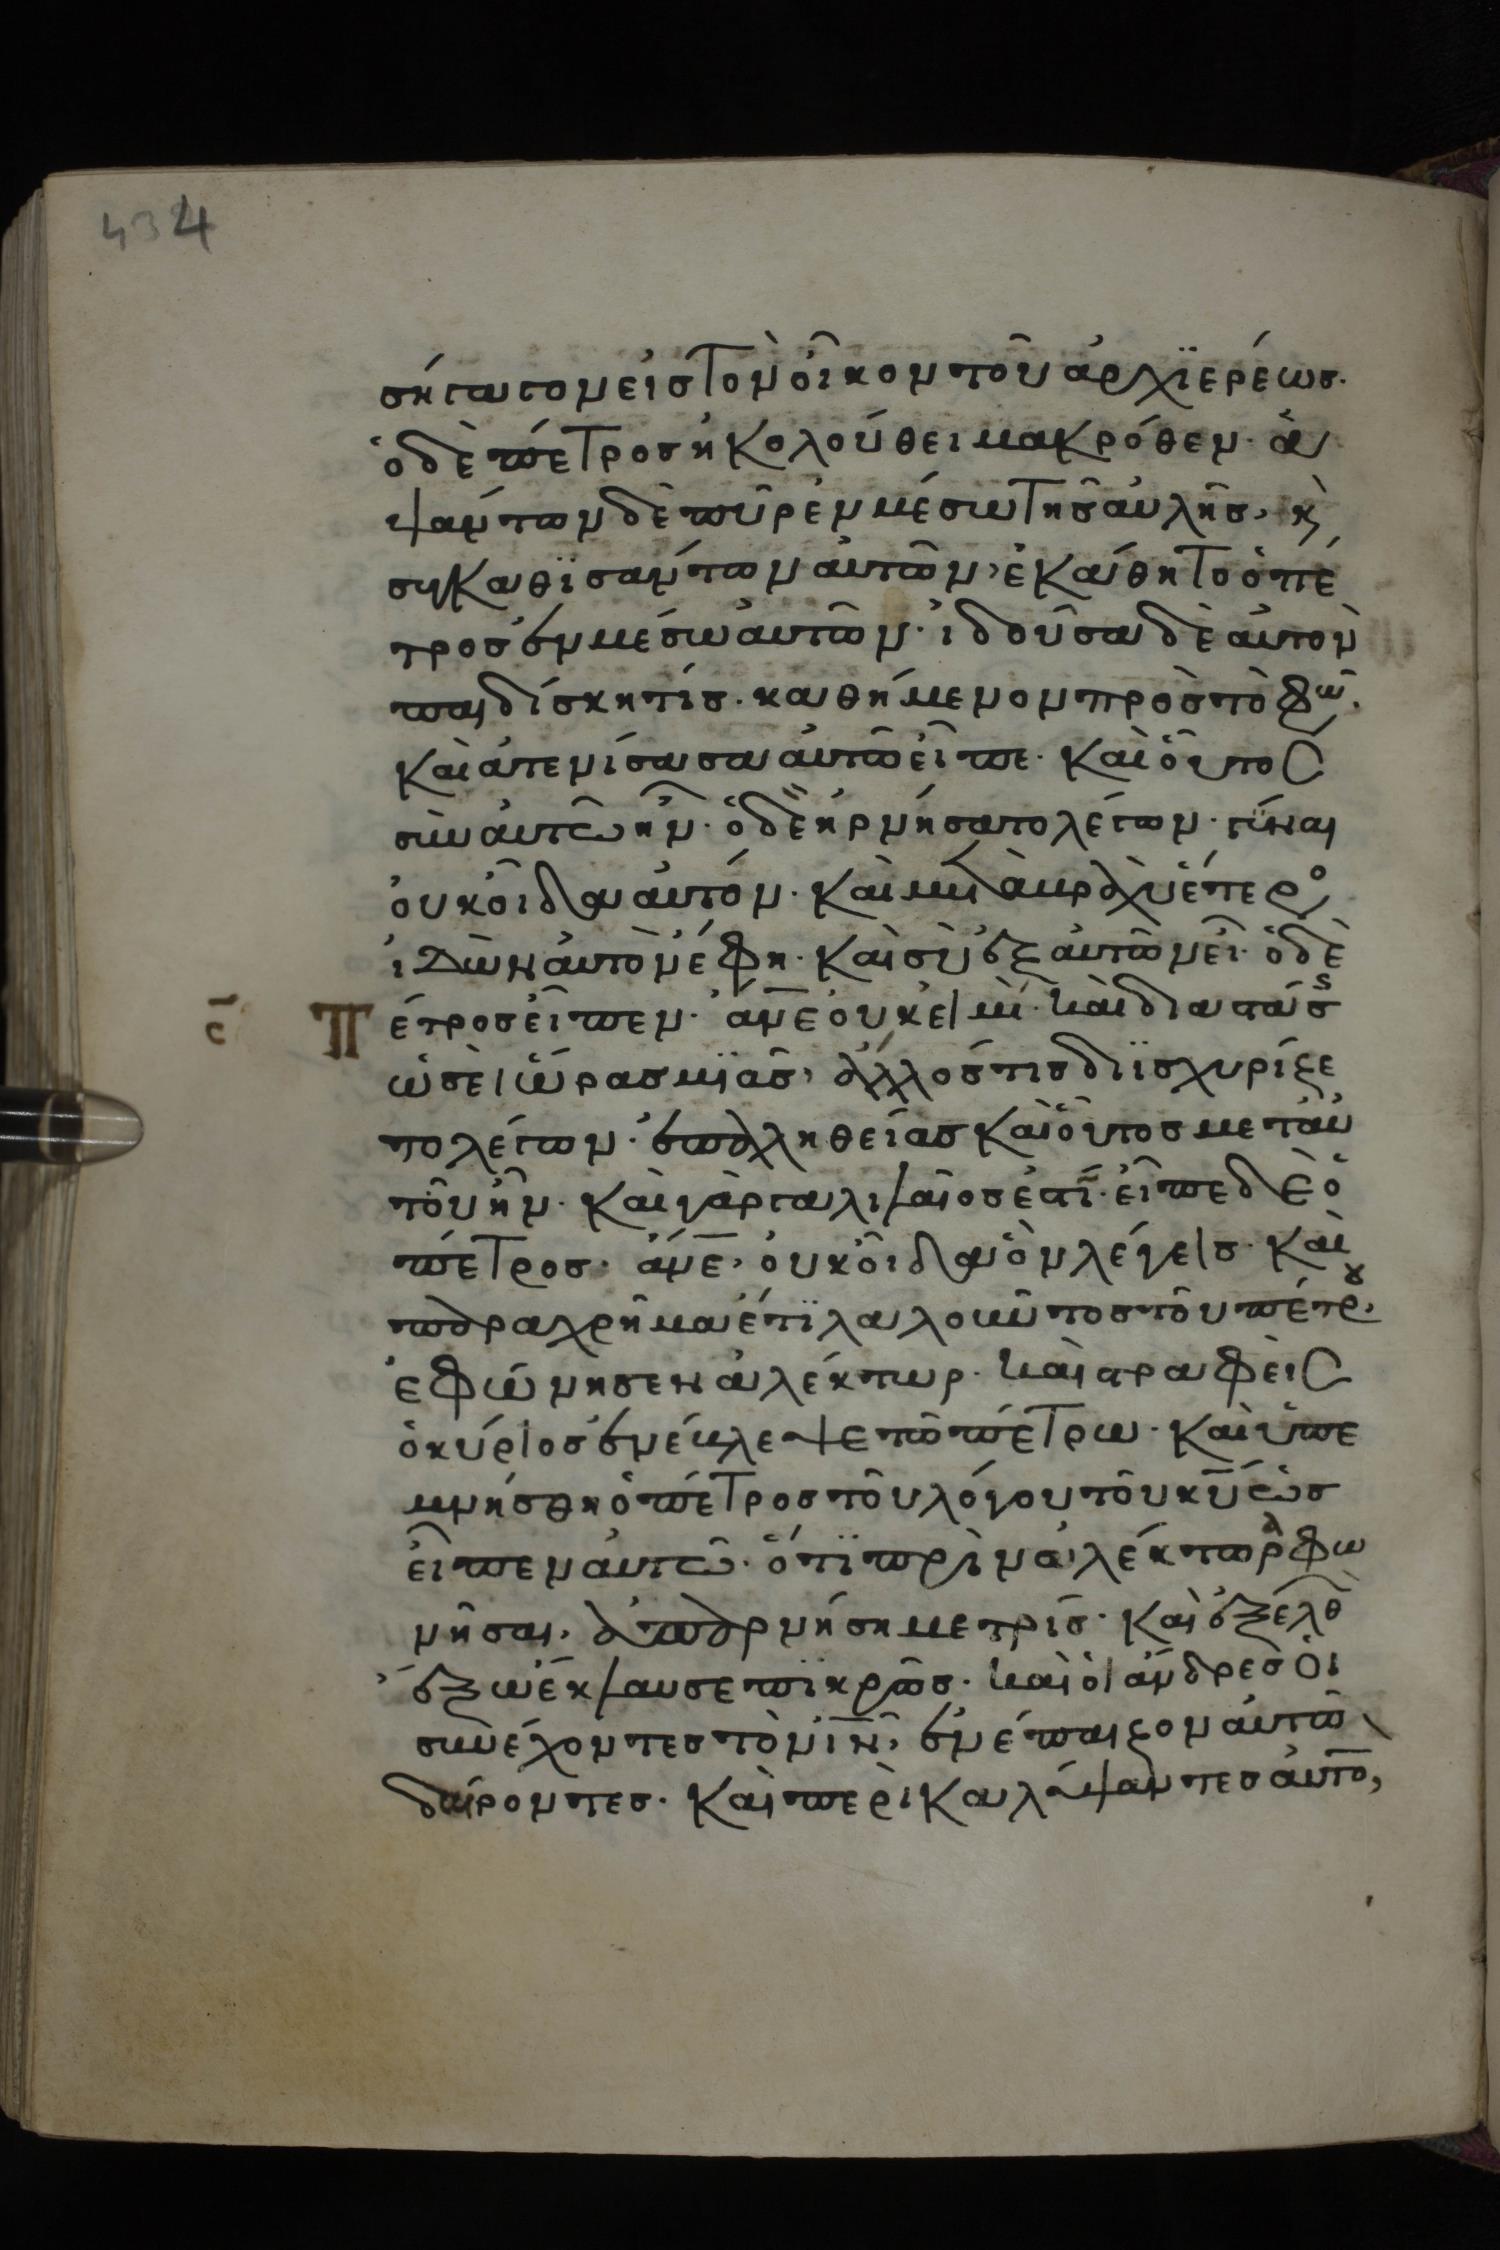 434
σήγαγον εἰς τὸν οἶκον τοῦ ἀρχϊερέως·
ὁ δὲ πέτρος ἠκολούθει μακρόθεν· ἁ
ψάντων δὲ πῦρ ἐν μέσω τῆς αὐλῆς, κ
συγκαθϊσάντων αὐτῶν, ἐκάθητο ὁ πέ
τρος ἐν μέσω αὐτῶν· ἰδοῦσα δὲ αὐτὸν
παιδίσκη τίς· καθήμενον πρὸς τὸ φῶ·
καὶ ἀτενίσασα αὐτῶ εἶπε· καὶ οὗτος
σὺν αὐτῶ ἦν· ὁ δὲ ἠρνήσατο λέγων· γύναι
οὐκ οἶδα αὐτόν· καὶ μετὰ βραχὺ ἕτερο
ἰδὼν αὐτὸν ἔφη· καὶ σὺ ἐξ αὐτῶν εἶ· ὁ δὲ
ϛ Πέτρος εἶπεν· ἄνε οὐκ εἰμὶ· καὶ διαστάσ
ὡσεὶ ὥρας μϊᾶς, ἄλλός τις διϊσχυρίζε
το λέγων· ἐπ ἀληθείας καὶ οὗτος μετ αὐ
τοῦ ἦν· καὶ γὰρ γαλιλαῖος ἐστϊ· εἶπε δὲ ὁ
πέτρος· ἄνε, οὐκ οἶδα ὃ λέγεις· καὶ
παραχρῆμα ἔτϊ λαλοῦντος τοῦ πέτρου
ἐφώνησεν ἀλέκτωρ· καὶ στραφεὶς
ὁ κύριος ἐνέβλεψε τῶ πέτρω· καὶ ὑπε
μνήσθη ὁ πέτρος τοῦ λόγου τοῦ κυ ὡς
εἶπεν αὐτῶ· ὅτϊ πρὶν ἀλέκτορα φω
νῆσαι, ἀπαρνήση με τρίς· καὶ ἐξελθ
ἔξω ἔκλαυσε πϊκρῶς· καὶ οἱ ἄνδρες οἱ
συνέχοντες τὸν ιν, ἐνέπαιζον αὐτῶ
δαίροντες· καὶ περικαλύψαντες αὐτο,